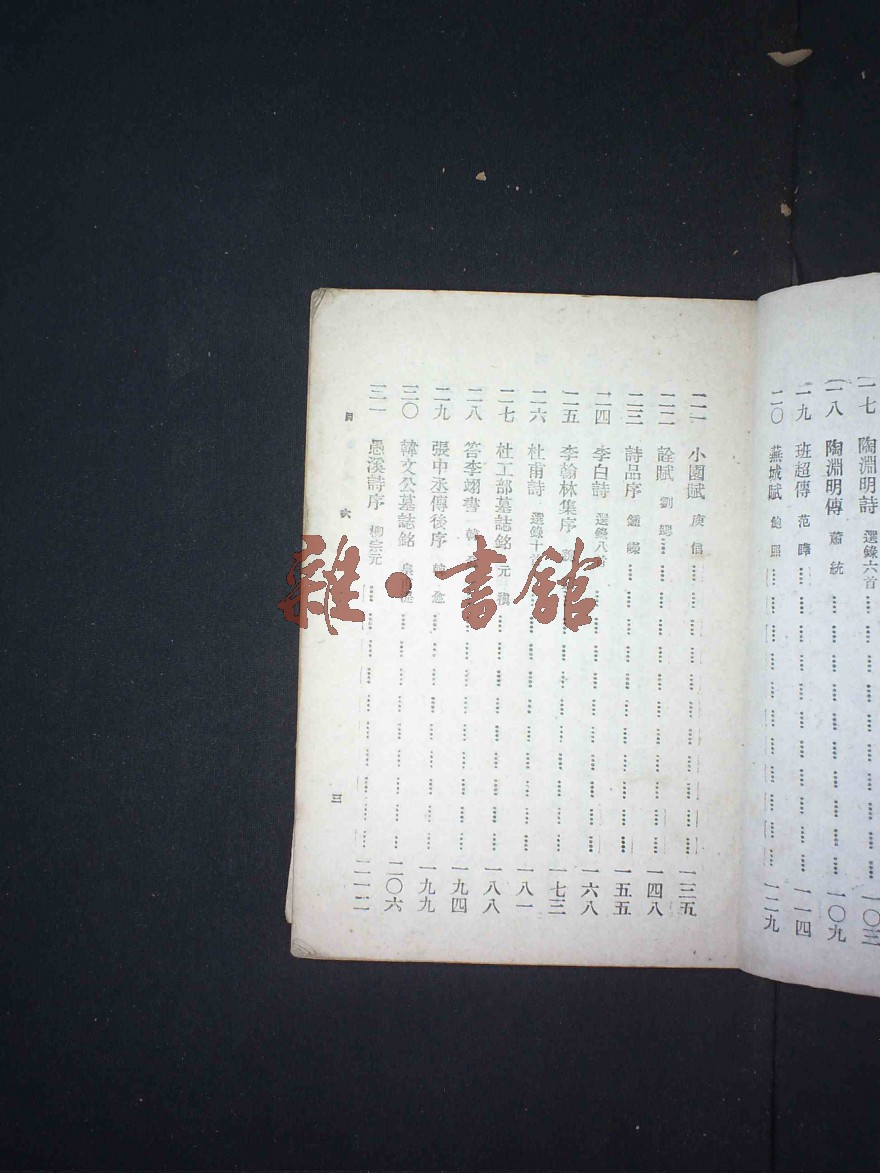 一七 陶淵明詩 選錄六首 一〇三
一八 陶淵明傳 蕭統 一〇九
一九 班超傳 范曄 一一四
二〇 蕪城賦 鮑照 一二九
二一 小園賦 庾信 一三五
二二 詮賦 劉勰 一四八
二三 詩品序 鍾嶸 一五五
二四 李白詩 選錄八首 一六八
二五 李翰林集序 一七三
二六 杜甫詩 選錄十 一八一
二七 杜工部墓誌銘 元稹 一八八
二八 答李翊書 韓 一九四
二九 張中丞傳後序 韓愈 一九九
三〇 韓文公墓誌銘 皇甫湜 二〇六
三一 愚溪詩序 柳宗元 二一二
目 次 三
雜·書館